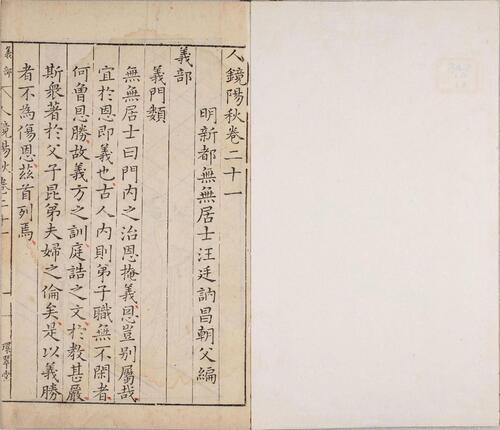 人鏡陽秋卷二十一
明新都無無居士汪廷訥昌朝父編
義部
義門類
無無居士曰門內之治恩掩義恩豈别屬哉
宜於恩即義也古人內則弟子職無不閑者
何曾恩勝故義方之訓庭誥之文於教甚嚴
斯衆著於父子昆弟夫婦之倫矣是以義勝
者不為傷恩茲首列焉
義部
人鏡陽秋卷二十一
一
環翠堂